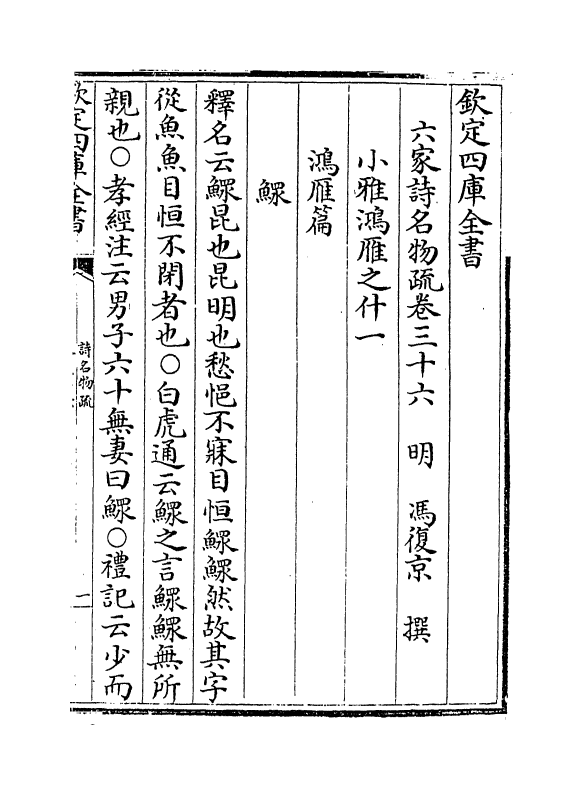 欽定四庫全書
六家詩名物疏卷三十六　明　馮復京　撰
小雅鴻雁之什一
鴻雁篇
鰥
釋名云鰥昆也昆明也愁悒不寐目恒鰥鰥然故其字
從魚魚目恒不閉者也○白虎通云鰥之言鰥鰥無所
親也○孝經注云男子六十無妻曰鰥○禮記云少而
欽定四庫全書
詩名物疏